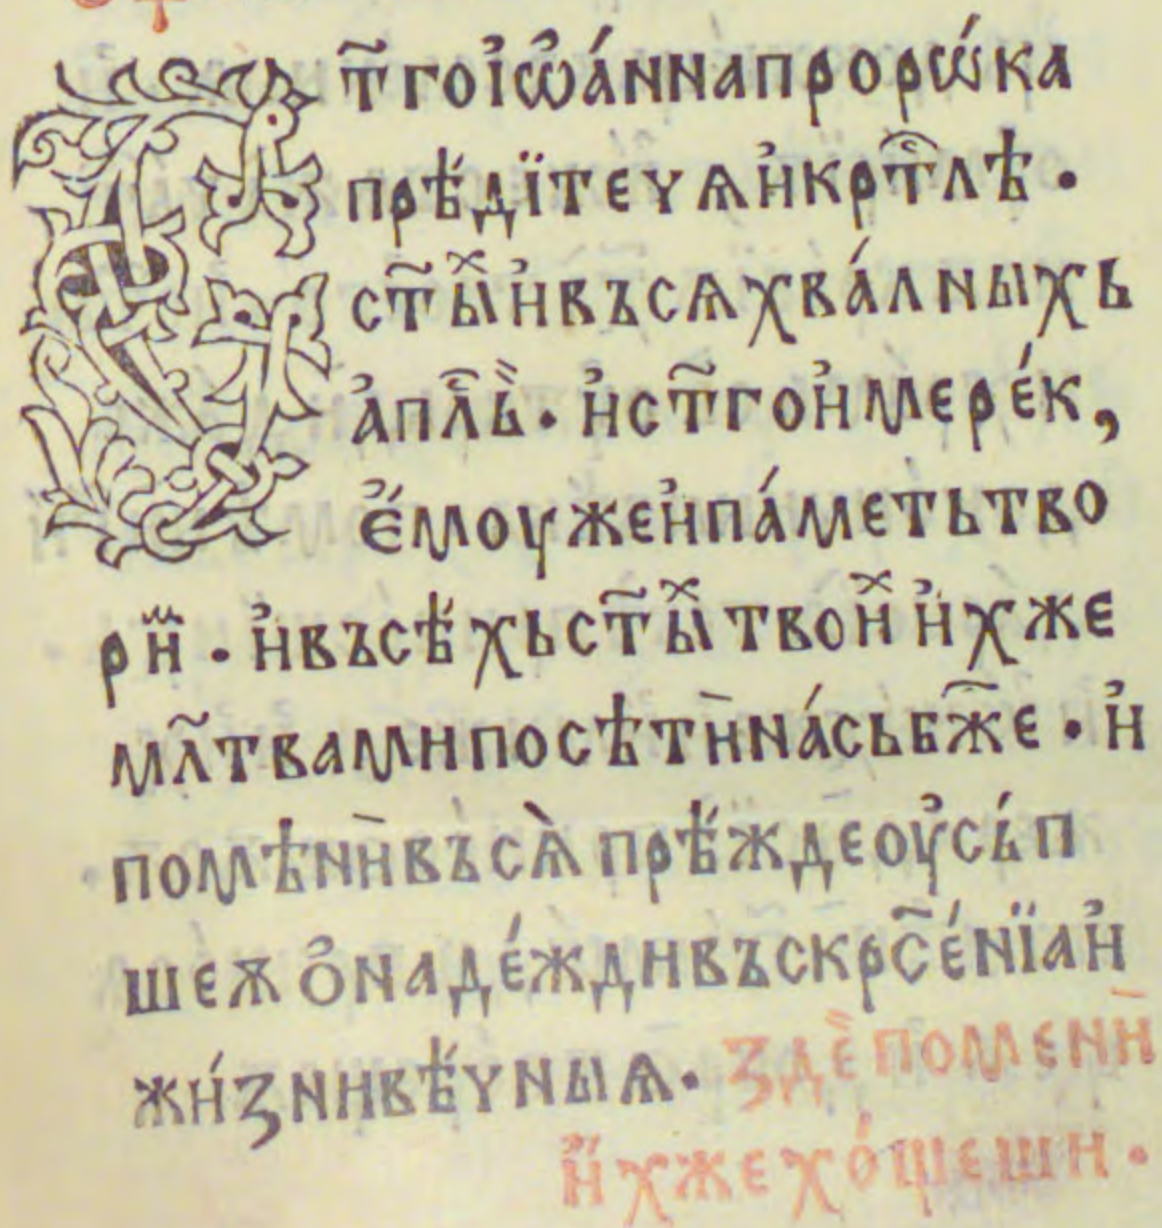 Ст҃го їѡ҆а́нна прорѡ́ка
прѣ́дїтеча и҆ крⷭ҇т҃лѣ ·
ст҃ыⷯ и҆ въсѧ хва́лныхь
а҆пл҃ь̏ · и҆ ст҃го и҆мере́к,
є҆́моуже и҆ па́меть тво
риⷨ · и҆ въсѣ́хь ст҃ыⷯ твоиⷯ и҆хже
мл҃твами посѣти̇̀ на́сь бж҃е · и҆
помѣни̇̀ въсѧ̀ прѣ́жде оу҆сь́п
шеѫ ѻ҆ надє́жди въскрⷭ҇е́нїа и҆
жи́зни вѣ́чныѧ · здѐ помени̇̀
и҆́хже хо́щеши ·